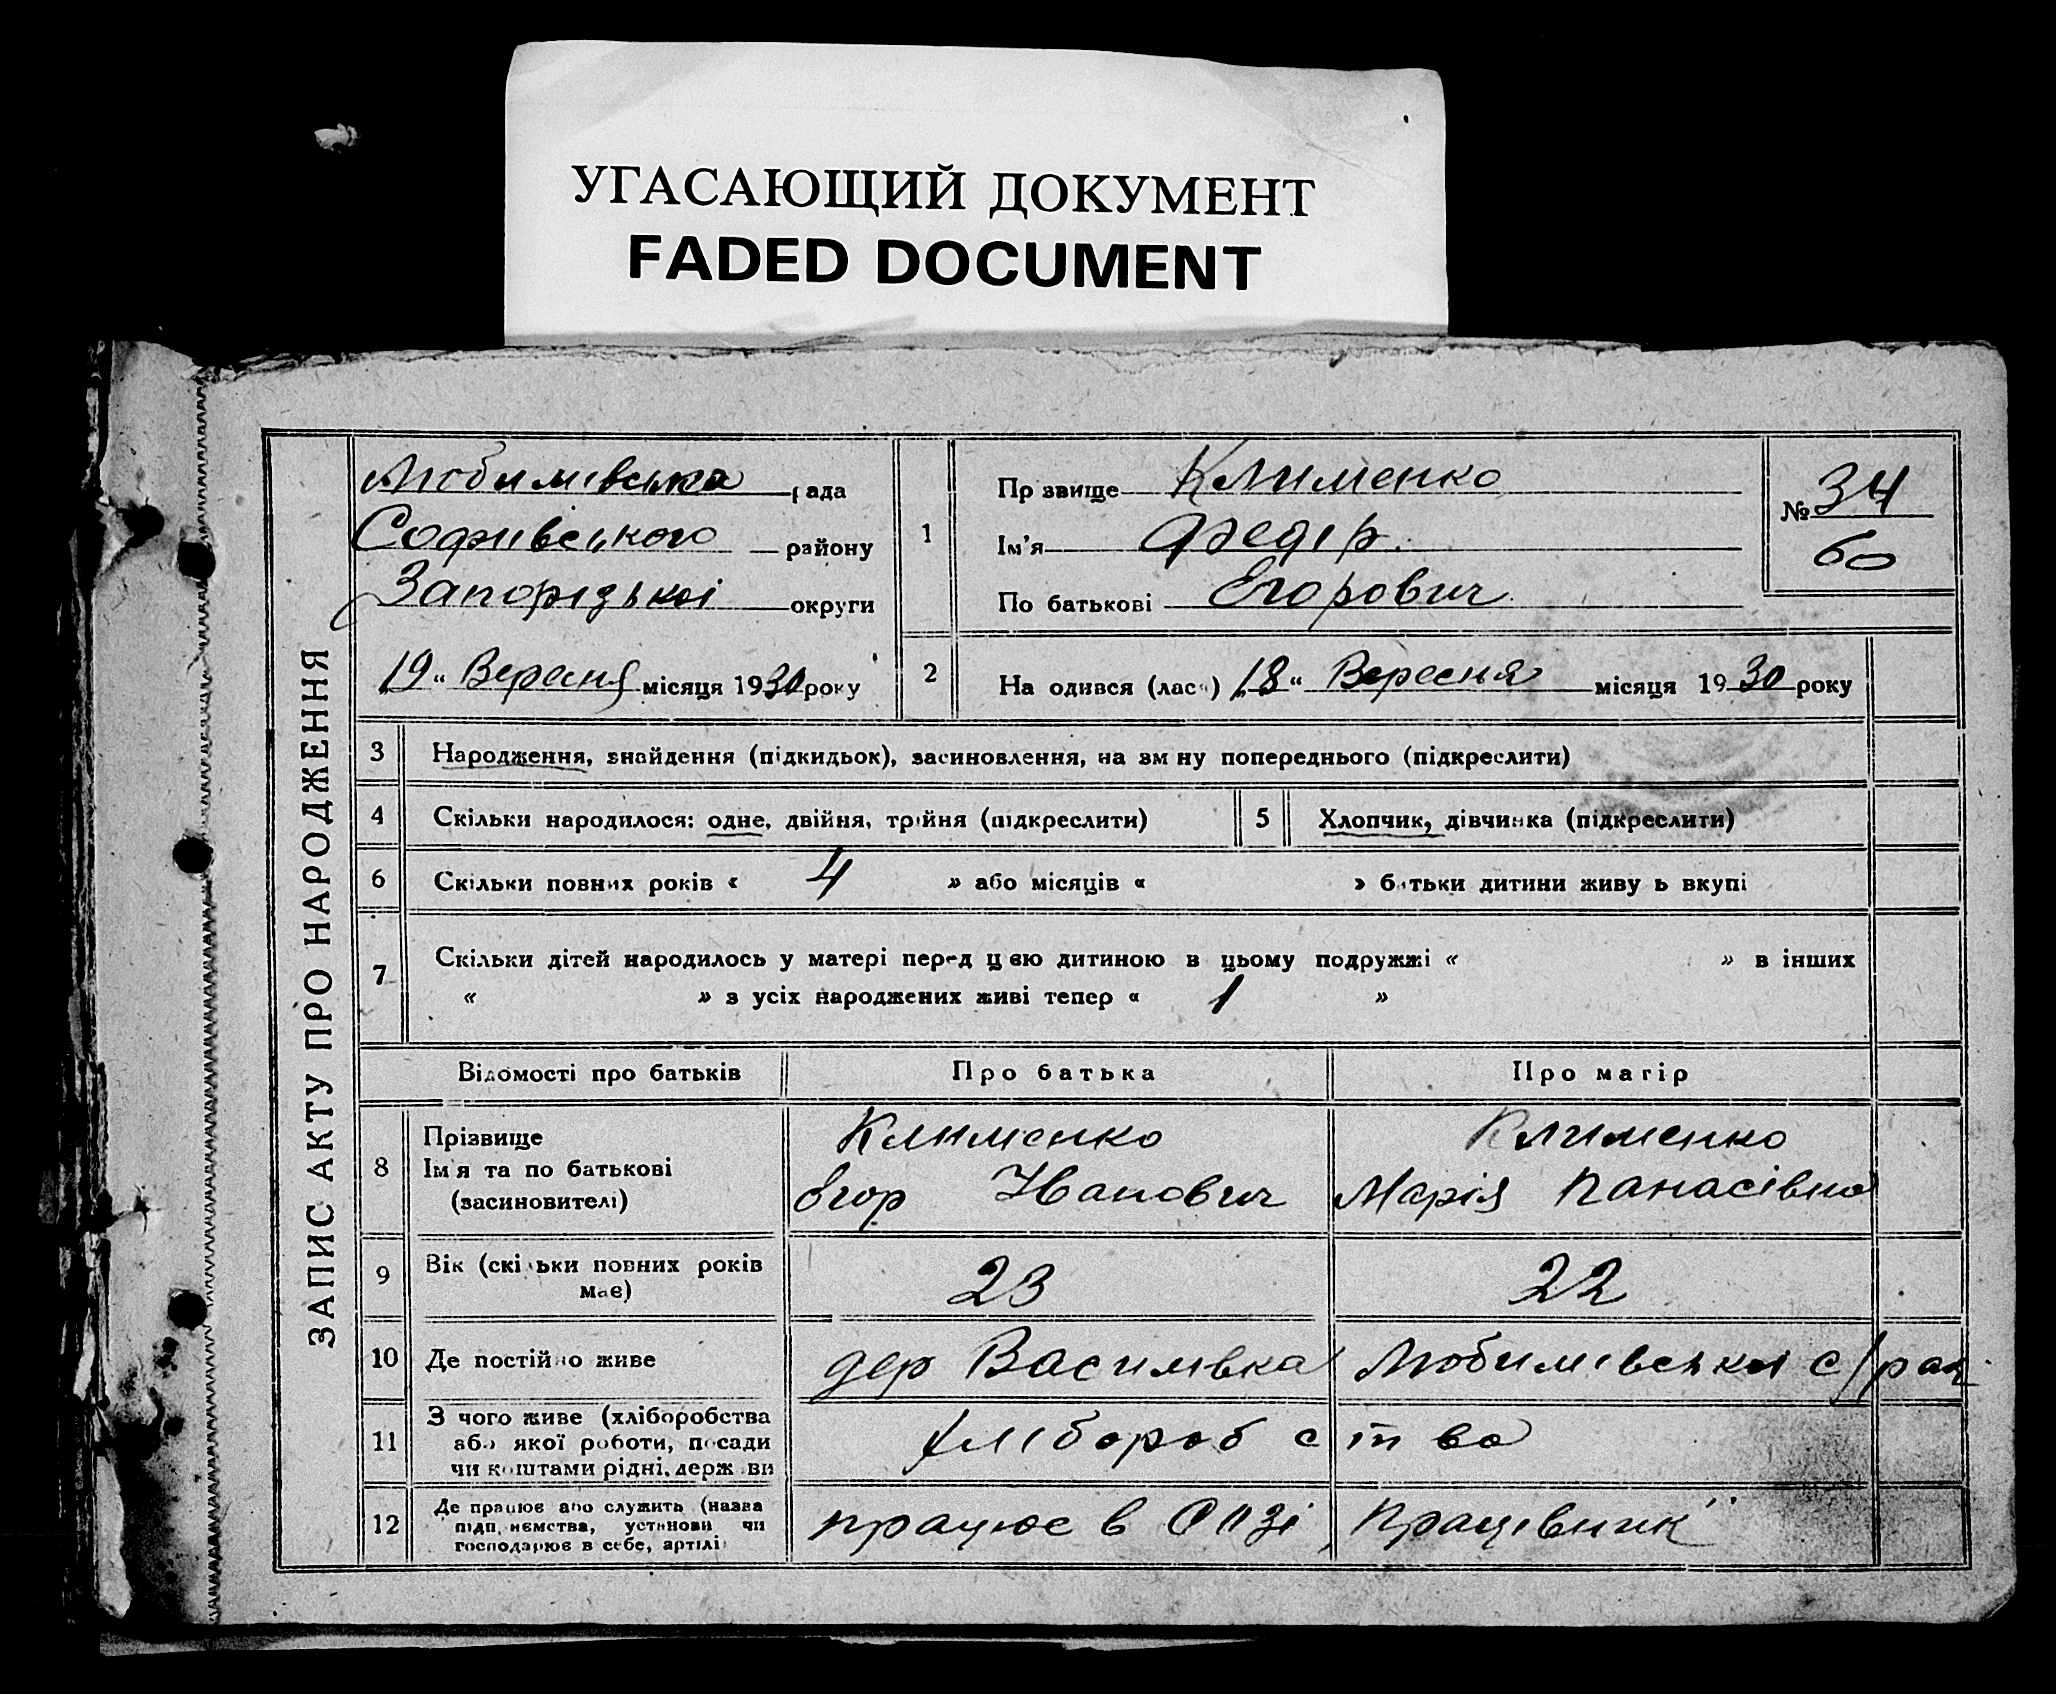 УГАСАЮЩИЙ ДОКУМЕНТ
FADED DOCUMENT
ЗАПИС АКТУ ПРО НАРОДЖЕННЯ
Любимівська рада
Софиївського району
Запорізької округи
19 " Вересня місяця 1930 року
1 Прізвище Клименко
Ім'я Федір
По батькові Єгорович
№ 34
60
2 Народився (лася) „18 " Вересня місяця 1930 року
3 Народження, знайдення (підкидьок), засиновлення, на зміну попереднього (підкреслити)
4 Скільки народилося: одне, двійня, трійня (підкреслити)
5 Хлопчик, дівчинка (підкреслити)
6 Скільки повних років « 4 » або місяців « » батьки дитини живуть вкупі
7 Скільки дітей народилось у матері перед цією дитиною в цьому подружжі « » в інших
« » з усіх народжених живі тепер « 1 »
Відомості про батьків Про батька Про матір
8 Прізвище Клименко Клименко
Ім'я та по батькові Єгор Іванович Марія Панасівна
(засиновителі)
9 Вік (скільки повних років має) 23 22
10 Де постійно живе дер Василівка Любимівської с/рад
11 З чого живе (хліборобства або якої роботи, посади чи коштами рідні, держави хліборобство
12 Де працює або служить (назва підприємства, установи чи господарює в себе, артілі працює в СОЗі Працівник